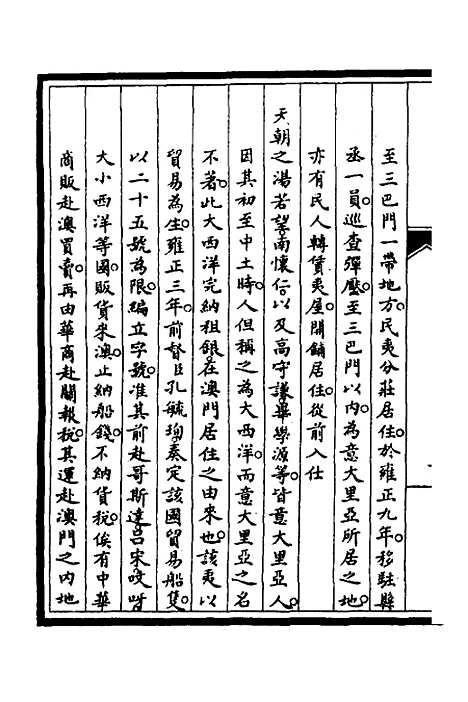 至三巴門一帶地方。民夷分莊居住。於雍正九年。移駐縣
丞一員。巡查彈壓。至三巴門以內。為意大里亞所居之地。
亦有民人轉賃夷屋。開鋪居住。從前入仕
天朝之湯若望。南懷仁。以及高守謙。畢學源等。皆意大里亞人。
因其初至中土。時人但稱之為大西洋。而意大里亞之名
不著。此大西洋完納租銀。在澳門居住之由來也。該夷以
貿易為生。雍正三年。前督臣孔毓珣奏定該國貿易船隻。
以二十五號為限。編立字號。准其前赴哥斯達。呂宋。咬𠺕
大小西洋等國。販貨來澳。止納船錢。不納貨稅。俟有中華
商販赴澳買賣。再由華商赴關報稅。其運赴澳門之內地